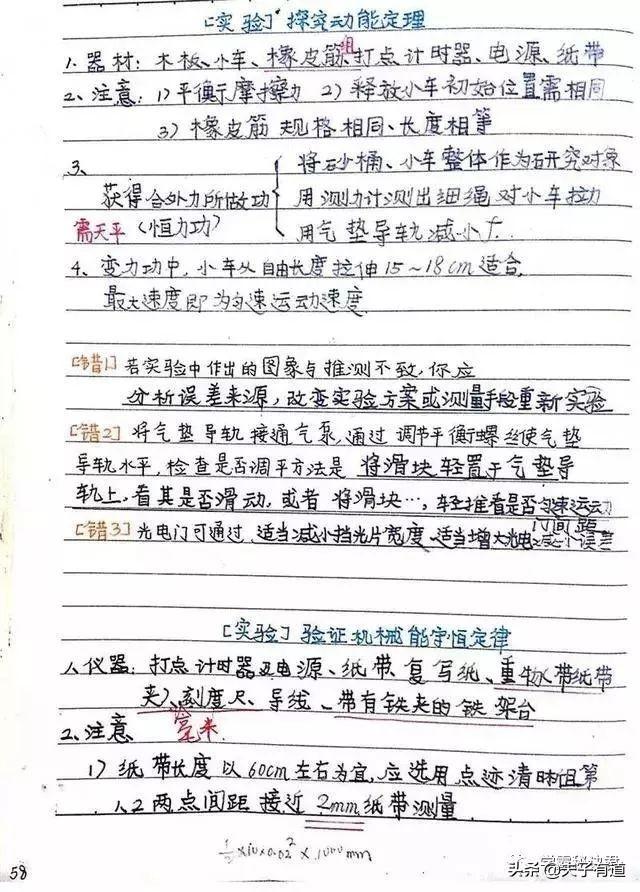 [实验] 探究动能定理
1. 器材: 木板、小车、橡皮筋组打点计时器、电源、纸带
2、注意: 1) 平衡摩擦力 2) 释放小车初始位置需相同
3) 橡皮筋 规格相同、长度相等
3、
将砂桶、小车整体作为研究对象
获得合外力所做功 用测力计测出细绳对小车拉力
需天平 (恒力功) 用气垫导轨减小f.
4、变力功中, 小车从自由长度拉伸15~18cm适合,
最大速度即为匀速运动速度
[错1] 若实验中作出的图象与推测不致, 你应
分析误差来源, 改变实验方案或测量手段重新实验
[错2] 将气垫导轨接通气泵, 通过调节平衡螺丝使气垫
导轨水平, 检查是否调平方法是 将滑块轻置于气垫导
轨上, 看其是否滑动, 或者 将滑块…, 轻推看是否匀速运动
[错3] 光电门可通过 适当减小挡光片宽度、适当增大光电门间距减小误差
[实验] 验证机械能守恒定律
1、仪器: 打点计时器及电源、纸带、复写纸、重物(带纸带
夹)、刻度尺、导线、带有铁夹的铁架台
毫米
2、注意
1) 纸带长度以60cm左右为宜, 应选用点迹清晰但第
1、2两点间距接近2mm纸带测量
½×10×0.02²×1000mm
58
学霸秘诀君
头条@夫子有道